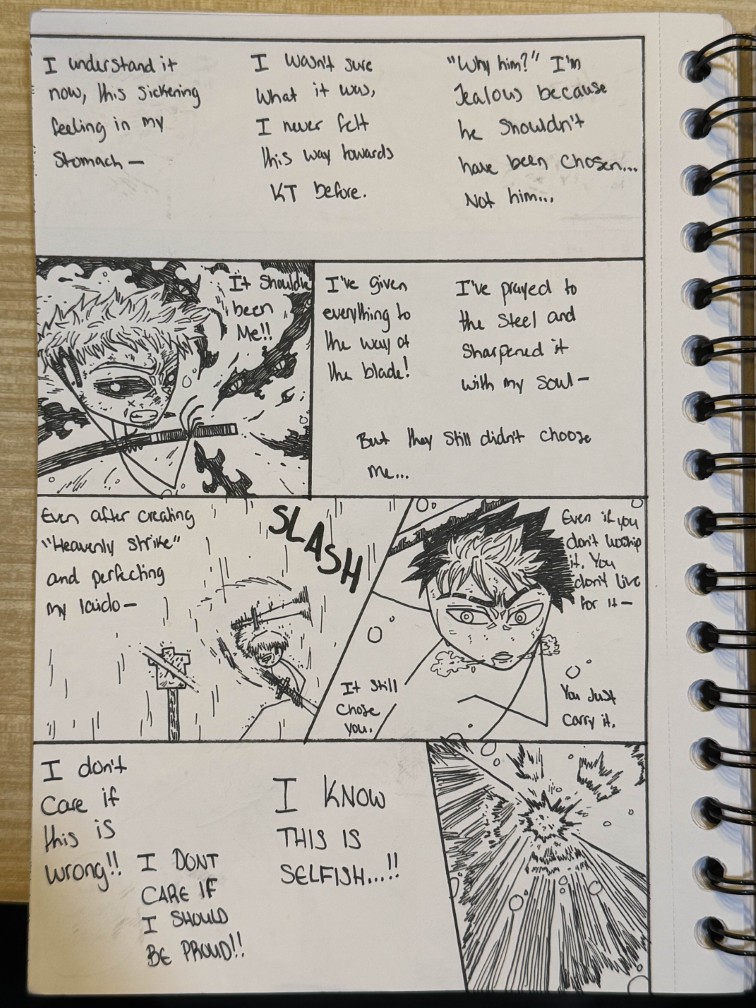 I understand it
now, this sickening
feeling in my
stomach —
I wasn't sure
what it was,
I never felt
this way towards
KT before.
"Why him?" I'm
Jealous because
he shouldn't
have been chosen...
Not him...
It should
been
Me!!
I've given
everything to
the way of
the blade!
I've prayed to
the steel and
sharpened it
with my soul —
But they still didn't choose
me...
Even after creating
"Heavenly Strike"
and perfecting
my Iaido —
SLASH
Even if you
don't worship
it. You
don't live
for it —
It still
chose
you.
You Just
carry it.
I don't
care if
this is
wrong!!
I DONT
CARE IF
I SHOULD
BE PROUD!!
I KNOW
THIS IS
SELFISH...!!